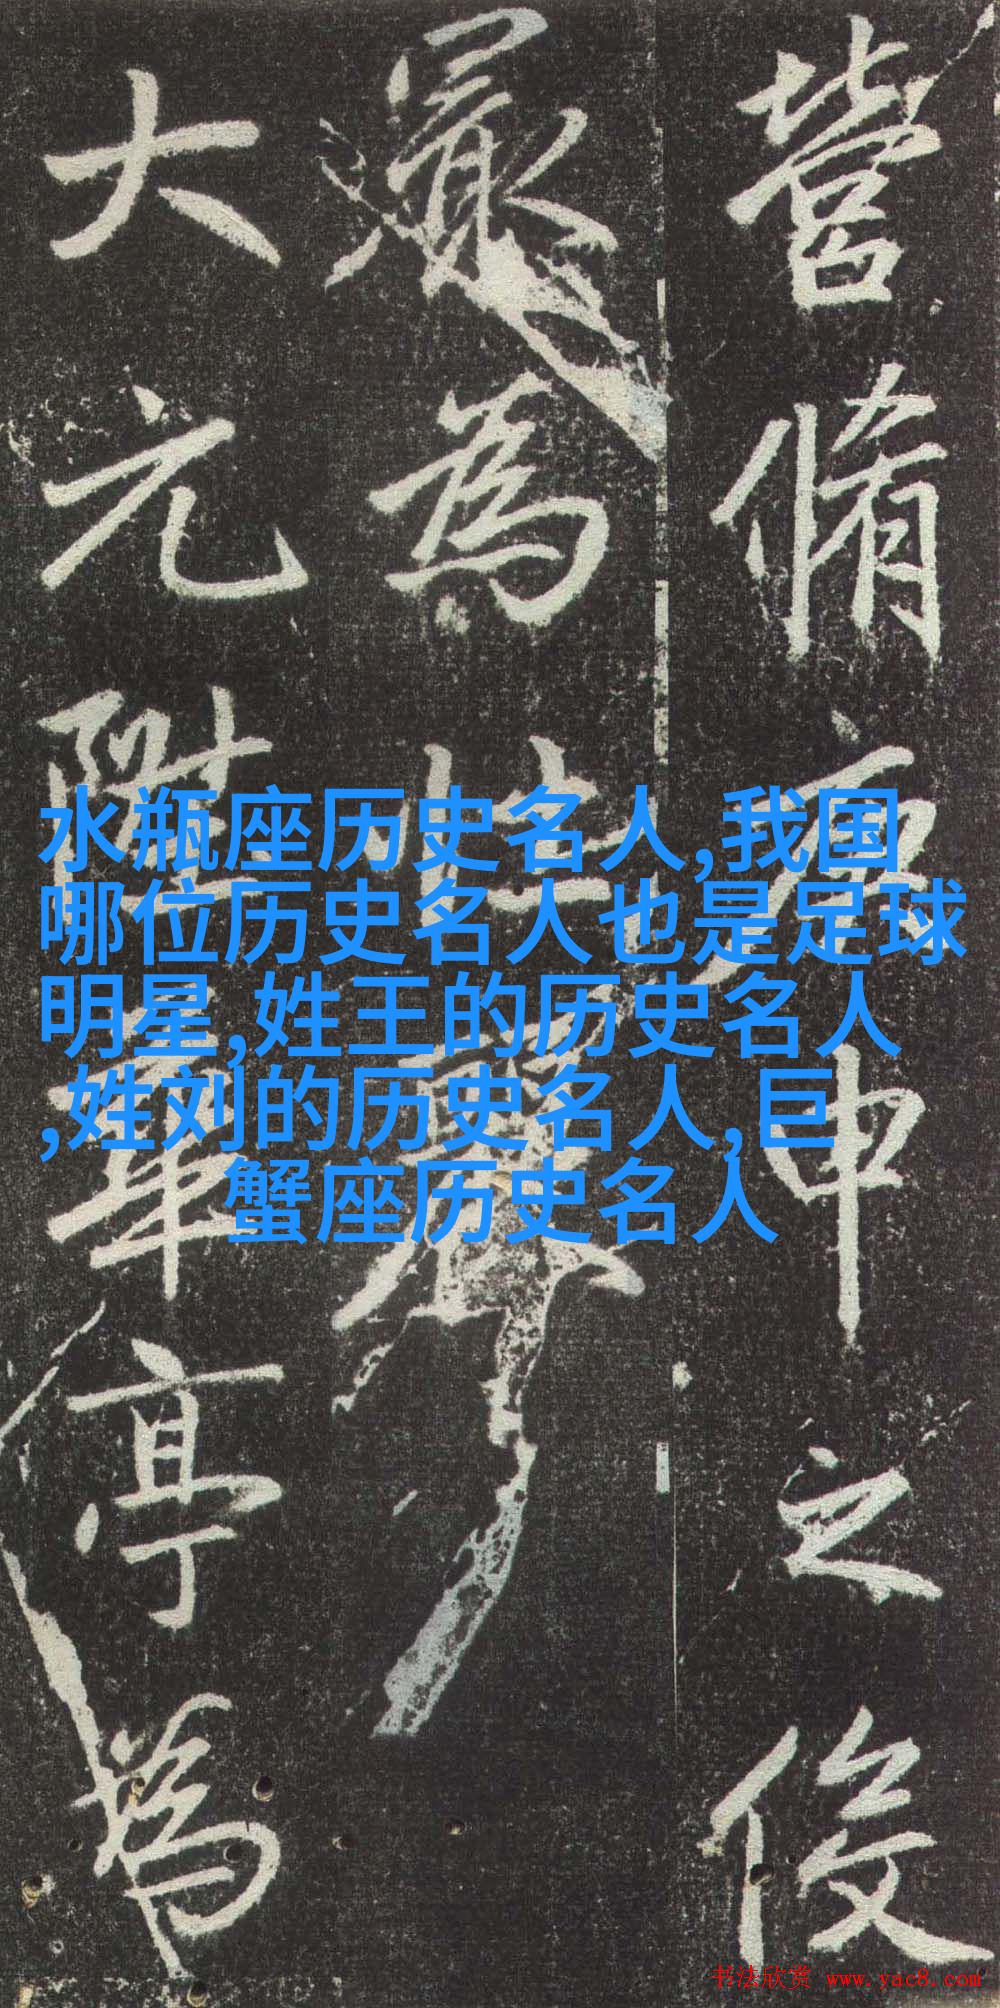 水瓶座历史名人,我国
哪位历史名人也是足球
明星,姓王的历史名人
,姓刘的历史名人,巨
蟹座历史名人
營脩庚申之
為壯
大元陞華亭為
书法欣赏 www.yac8.com